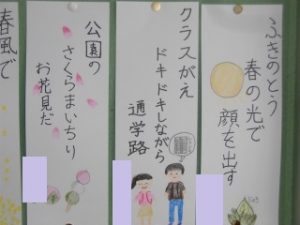 ふきのとう
春の光で
顔を出す
クラスがえ
ドキドキしながら
通学路
公園の
さくらまいちり
お花見だ
春風で